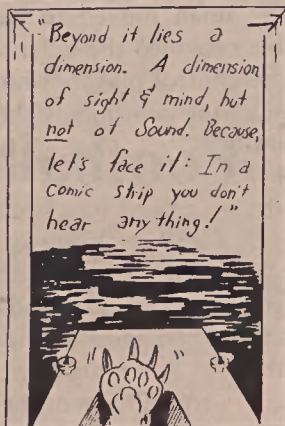 "Beyond it lies a
dimension. A dimension
of sight & mind, but
not of Sound. Because,
let's face it: In a
comic strip you don't
hear anything!"